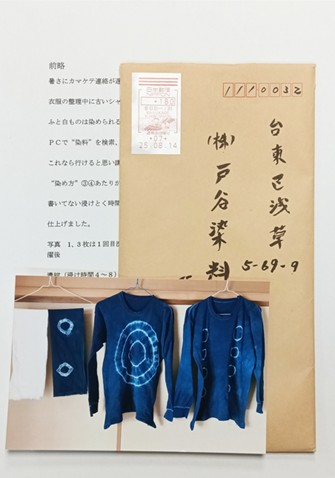 前略
暑さにカマケテ連絡が遅
衣服の整理中に古いシャ
ふと白ものは染められる
ＰＣで“染料”を検索。
これなら行けると思い購
“染め方”③④あたりが
書いてない浸けとく時間
仕上げました。
写真　１，３枚は１回目
濯後
濃紺（浸け時間４～８）
日本郵便
180
25.08.14
1110032
台東区浅草
5-69-9
(株)戸谷染料